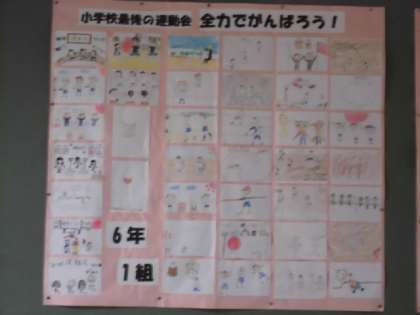 小学校最後の運動会 全力でがんばろう！
6年
1組